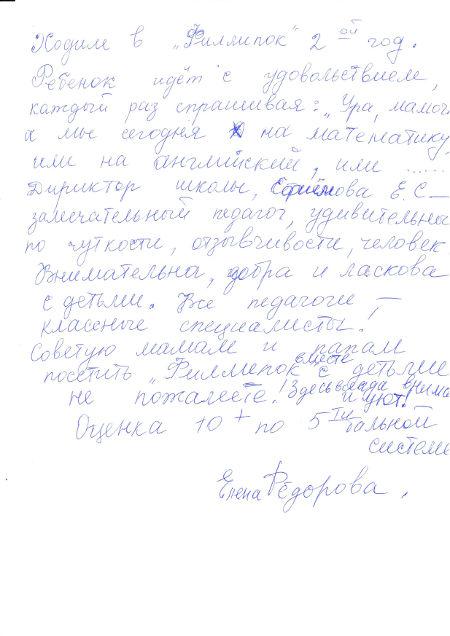 Ходим в „Филлипок" 2 ой год.
Ребенок идёт с удовольствием,
каждый раз спрашивая: „Ура, мамоч
а мы сегодня на математику,
или на английский, или ......
Дириктор школы, Ефимова Е.С –
замечательный педагог, удивительны
по чуткости, отзывчивости, человек.
Внимательна, добра и ласкова
с детьми. Все педагоги –
классные специалисты!
Советую мамам и папам
посетить „Филлипок" вместе с детьми
не пожалеете! Здесь всегда внима
и уют!
Оценка 10 + по 5 ти бальной
системе
Елена Фёдорова.